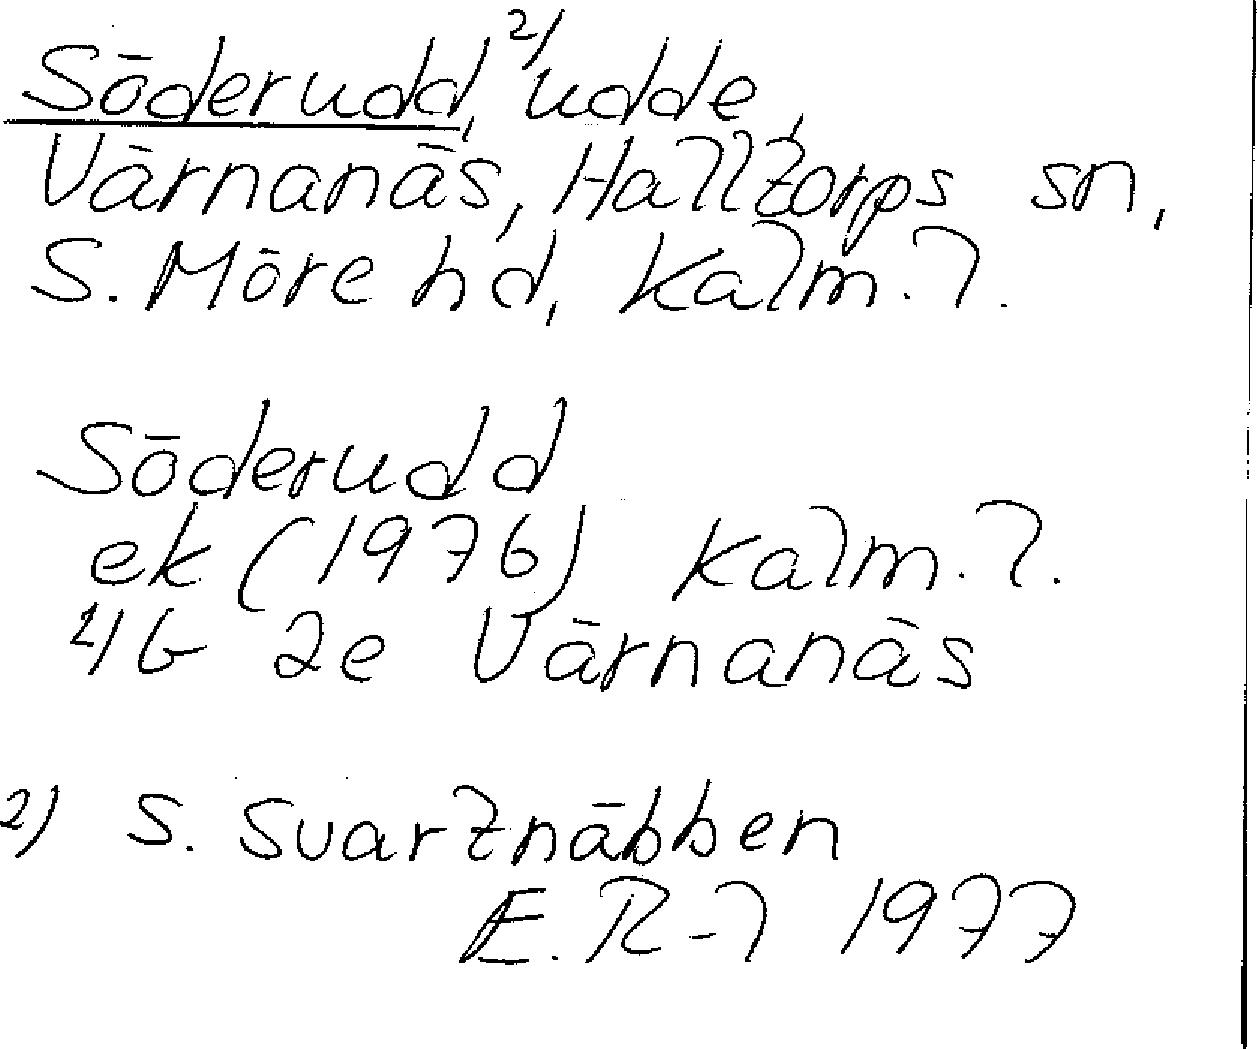 Söderudd, 2) udde,
Värnanäs, Halltorps sn,
S. Möre hd, Kalm. l.
Söderudd
ek (1976) Kalm. l.
4G 2e Värnanäs
2) S. Svartnäbben
E. R-l 1977